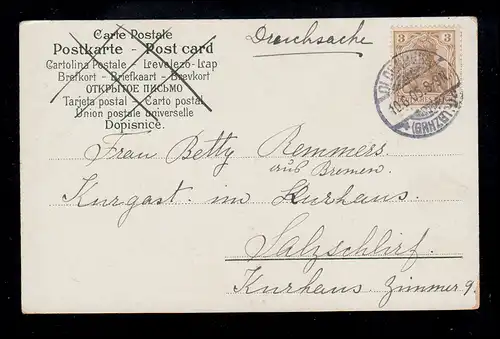 Carte Postale
Postkarte - Post card
Cartolina Postale - Levelező-Lap
Brefkort - Briefkaart - Brevkort
ОТКРЫТОЕ ПИСЬМО
Tarjeta postal - Carto postal
Union postale universelle
Dopisnice.
Drucksache
3 3
Frau Betty Remmers
aus Bremen.
Kurgast im Kurhaus.
Salzschlirf.
Kurhaus Zimmer 9.